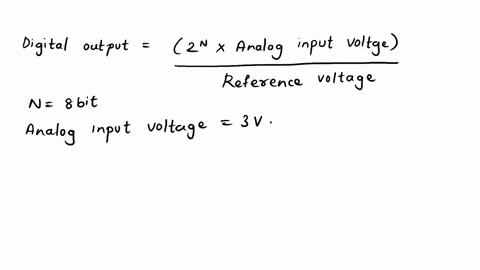 Digital output = (2ᴺ x Analog input voltge)
Reference voltage
N = 8 bit
Analog input voltage = 3V.